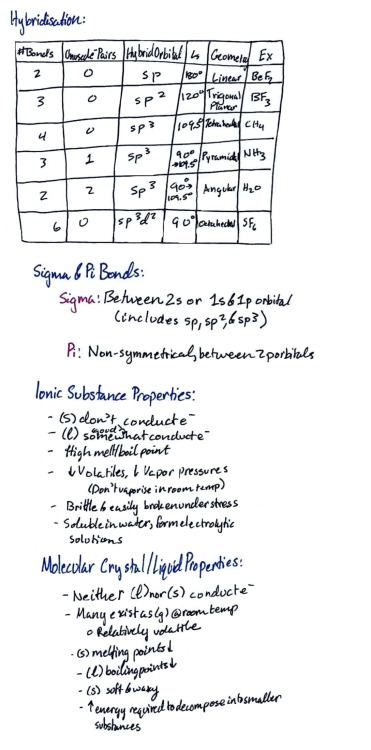 Hybridisation:
#Bonds Unused e⁻ Pairs Hybrid Orbital ∠ Geometry Ex
2 0 sp 180° Linear BeF₂
3 0 sp² 120° Trigonal Planar BF₃
4 0 sp³ 109.5° Tetrahedral CH₄
3 1 sp³ 90° →109.5° Pyramidal NH₃
2 2 sp³ 90°→ 109.5° Angular H₂O
6 0 sp³d² 90° Octahedral SF₆
Sigma & Pi Bonds:
Sigma: Between 2s or 1s&1p orbital
(includes sp, sp², & sp3)
Pi: Non-symmetrical, between 2 p orbitals
Ionic Substance Properties:
- (S) don't conduct e⁻
- (l) somewhat conduct e⁻
- High melt/boil point
- ↓ Volatiles, ↓ Vapor pressures
(Don't vaporise in room temp)
- Brittle & easily broken under stress
- Soluble in water, form electrolytic
solutions
Molecular Crystal/Liquid Properties:
- Neither (l) nor (s) conduct e⁻
- Many exist as (g) @ room temp
o Relatively volatile
- (s) melting points ↓
- (l) boiling points ↓
- (s) soft & waxy
- ↑ energy required to decompose into smaller
substances